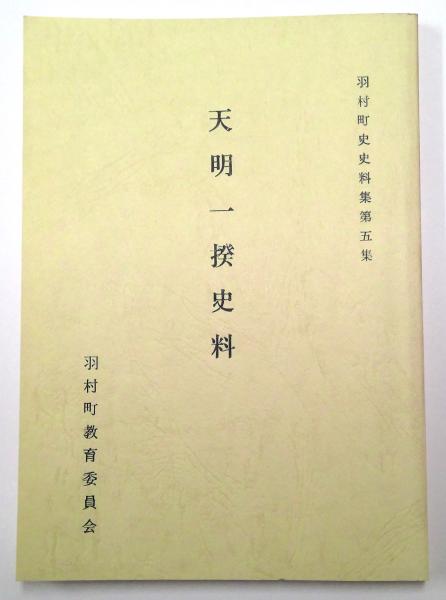 羽村町史史料集第五集
天明一揆史料
羽村町教育委員会